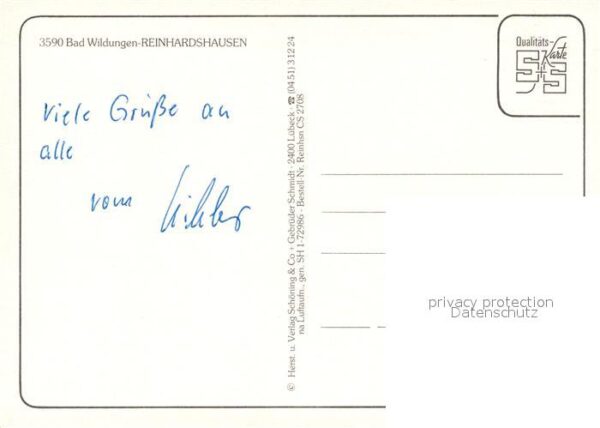 3590 Bad Wildungen-REINHARDSHAUSEN
Qualitäts-
Karte
S+S
Viele Grüße an
alle
vom
© Herst. u. Verlag Schöning & Co + Gebrüder Schmidt · 2400 Lübeck · ☎ (04 51) 3 12 24
na Luftaufn., gen. SH 1-72986 - Bestell-Nr. Reinhsn CS 2708
privacy protection
Datenschutz